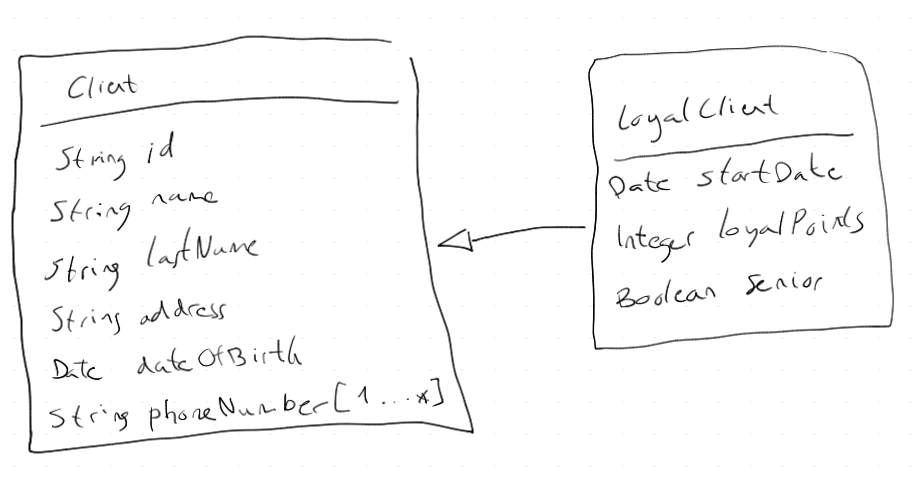 Client
String id
String name
String lastName
String address
Date dateOfBirth
String phoneNumber[1...*]
LoyalClient
Date startDate
Integer loyalPoints
Boolean senior